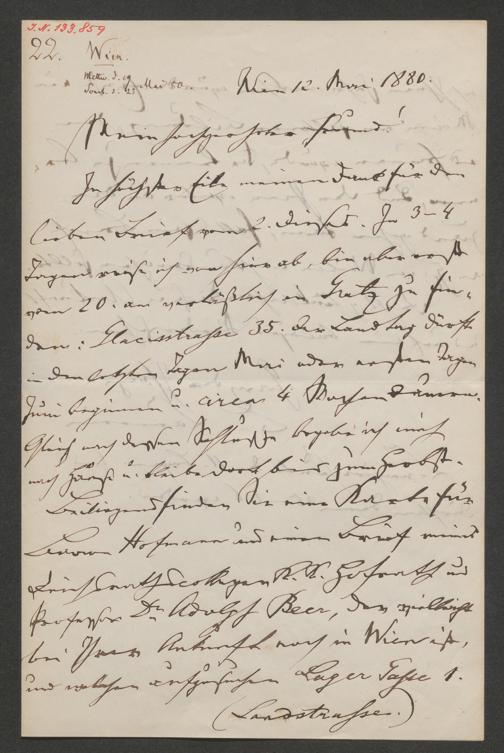 I.N. 133.859
22. Wien.
Wien 12. Mai 1880.
Mein hochverehrter Freund!
In höchster Eile meinen Dank für den
lieben Brief vom 2. dieses. In 3–4
Tagen reise ich von hier ab, bin aber erst
vom 20. an verläßlich in Gratz zu fin-
den: Glacisstrasse 35. Der Landtag dürfte
in den letzten Tagen Mai oder ersten Tagen
Juni beginnen u. circa 4 Wochen dauern.
Gleich nach dessen Schlusse begebe ich mich
nach u. bleibe dort bis zum Herbst.
Beiliegend finden Sie eine Karte für
Baron Hofmann und einen Brief meines
Reichsrathscollegen K. K. Hofrath und
Professor Dr. Adolf Beer, der vielleicht
bei Ihrer Ankunft noch in Wien ist,
und welchen aufzusuchen Lagergasse 1.
(Landstrasse.)